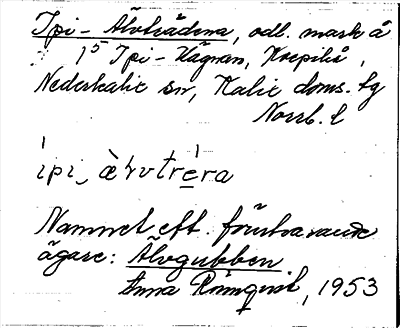 Ipi-Älvträdena, odl. mark å
1⁵ Ipi-Hägnan, Korpikå,
Nederkalix sn, Kalix doms. tg
Norrb. l
ìpi, æ̀ɫvtrèra
Namnet eft. förutvarande
ägare: Älvgubben
Anna Rönnqvist, 1953